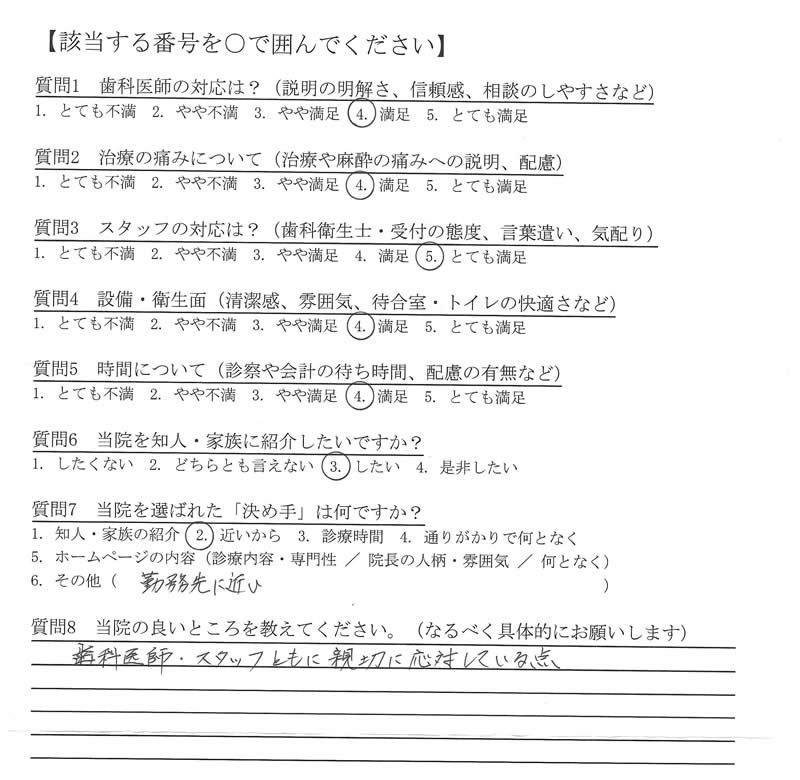 【該当する番号を○で囲んでください】
質問1　歯科医師の対応は？（説明の明解さ、信頼感、相談のしやすさなど）
1. とても不満　2. やや不満　3. やや満足　4. 満足　5. とても満足
質問2　治療の痛みについて（治療や麻酔の痛みへの説明、配慮）
1. とても不満　2. やや不満　3. やや満足　4. 満足　5. とても満足
質問3　スタッフの対応は？（歯科衛生士・受付の態度、言葉遣い、気配り）
1. とても不満　2. やや不満　3. やや満足　4. 満足　5. とても満足
質問4　設備・衛生面（清潔感、雰囲気、待合室・トイレの快適さなど）
1. とても不満　2. やや不満　3. やや満足　4. 満足　5. とても満足
質問5　時間について（診察や会計の待ち時間、配慮の有無など）
1. とても不満　2. やや不満　3. やや満足　4. 満足　5. とても満足
質問6　当院を知人・家族に紹介したいですか？
1. したくない　2. どちらとも言えない　3. したい　4. 是非したい
質問7　当院を選ばれた「決め手」は何ですか？
1. 知人・家族の紹介　2. 近いから　3. 診療時間　4. 通りがかりで何となく
5. ホームページの内容（診療内容・専門性 ／ 院長の人柄・雰囲気 ／ 何となく）
6. その他（　勤務先に近い　）
質問8　当院の良いところを教えてください。（なるべく具体的にお願いします）
歯科医師・スタッフともに親切に応対している点